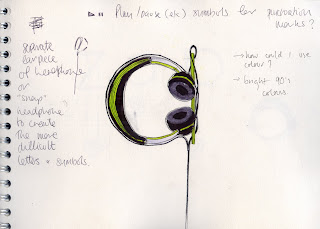 Play/pause (etc) symbols for punctuation
marks?
separate
earpiece
of headphone
or
"snap"
headphone
to create
the more
difficult
letters + symbols.
→ how could I use
colour?
→ bright 90's
colours